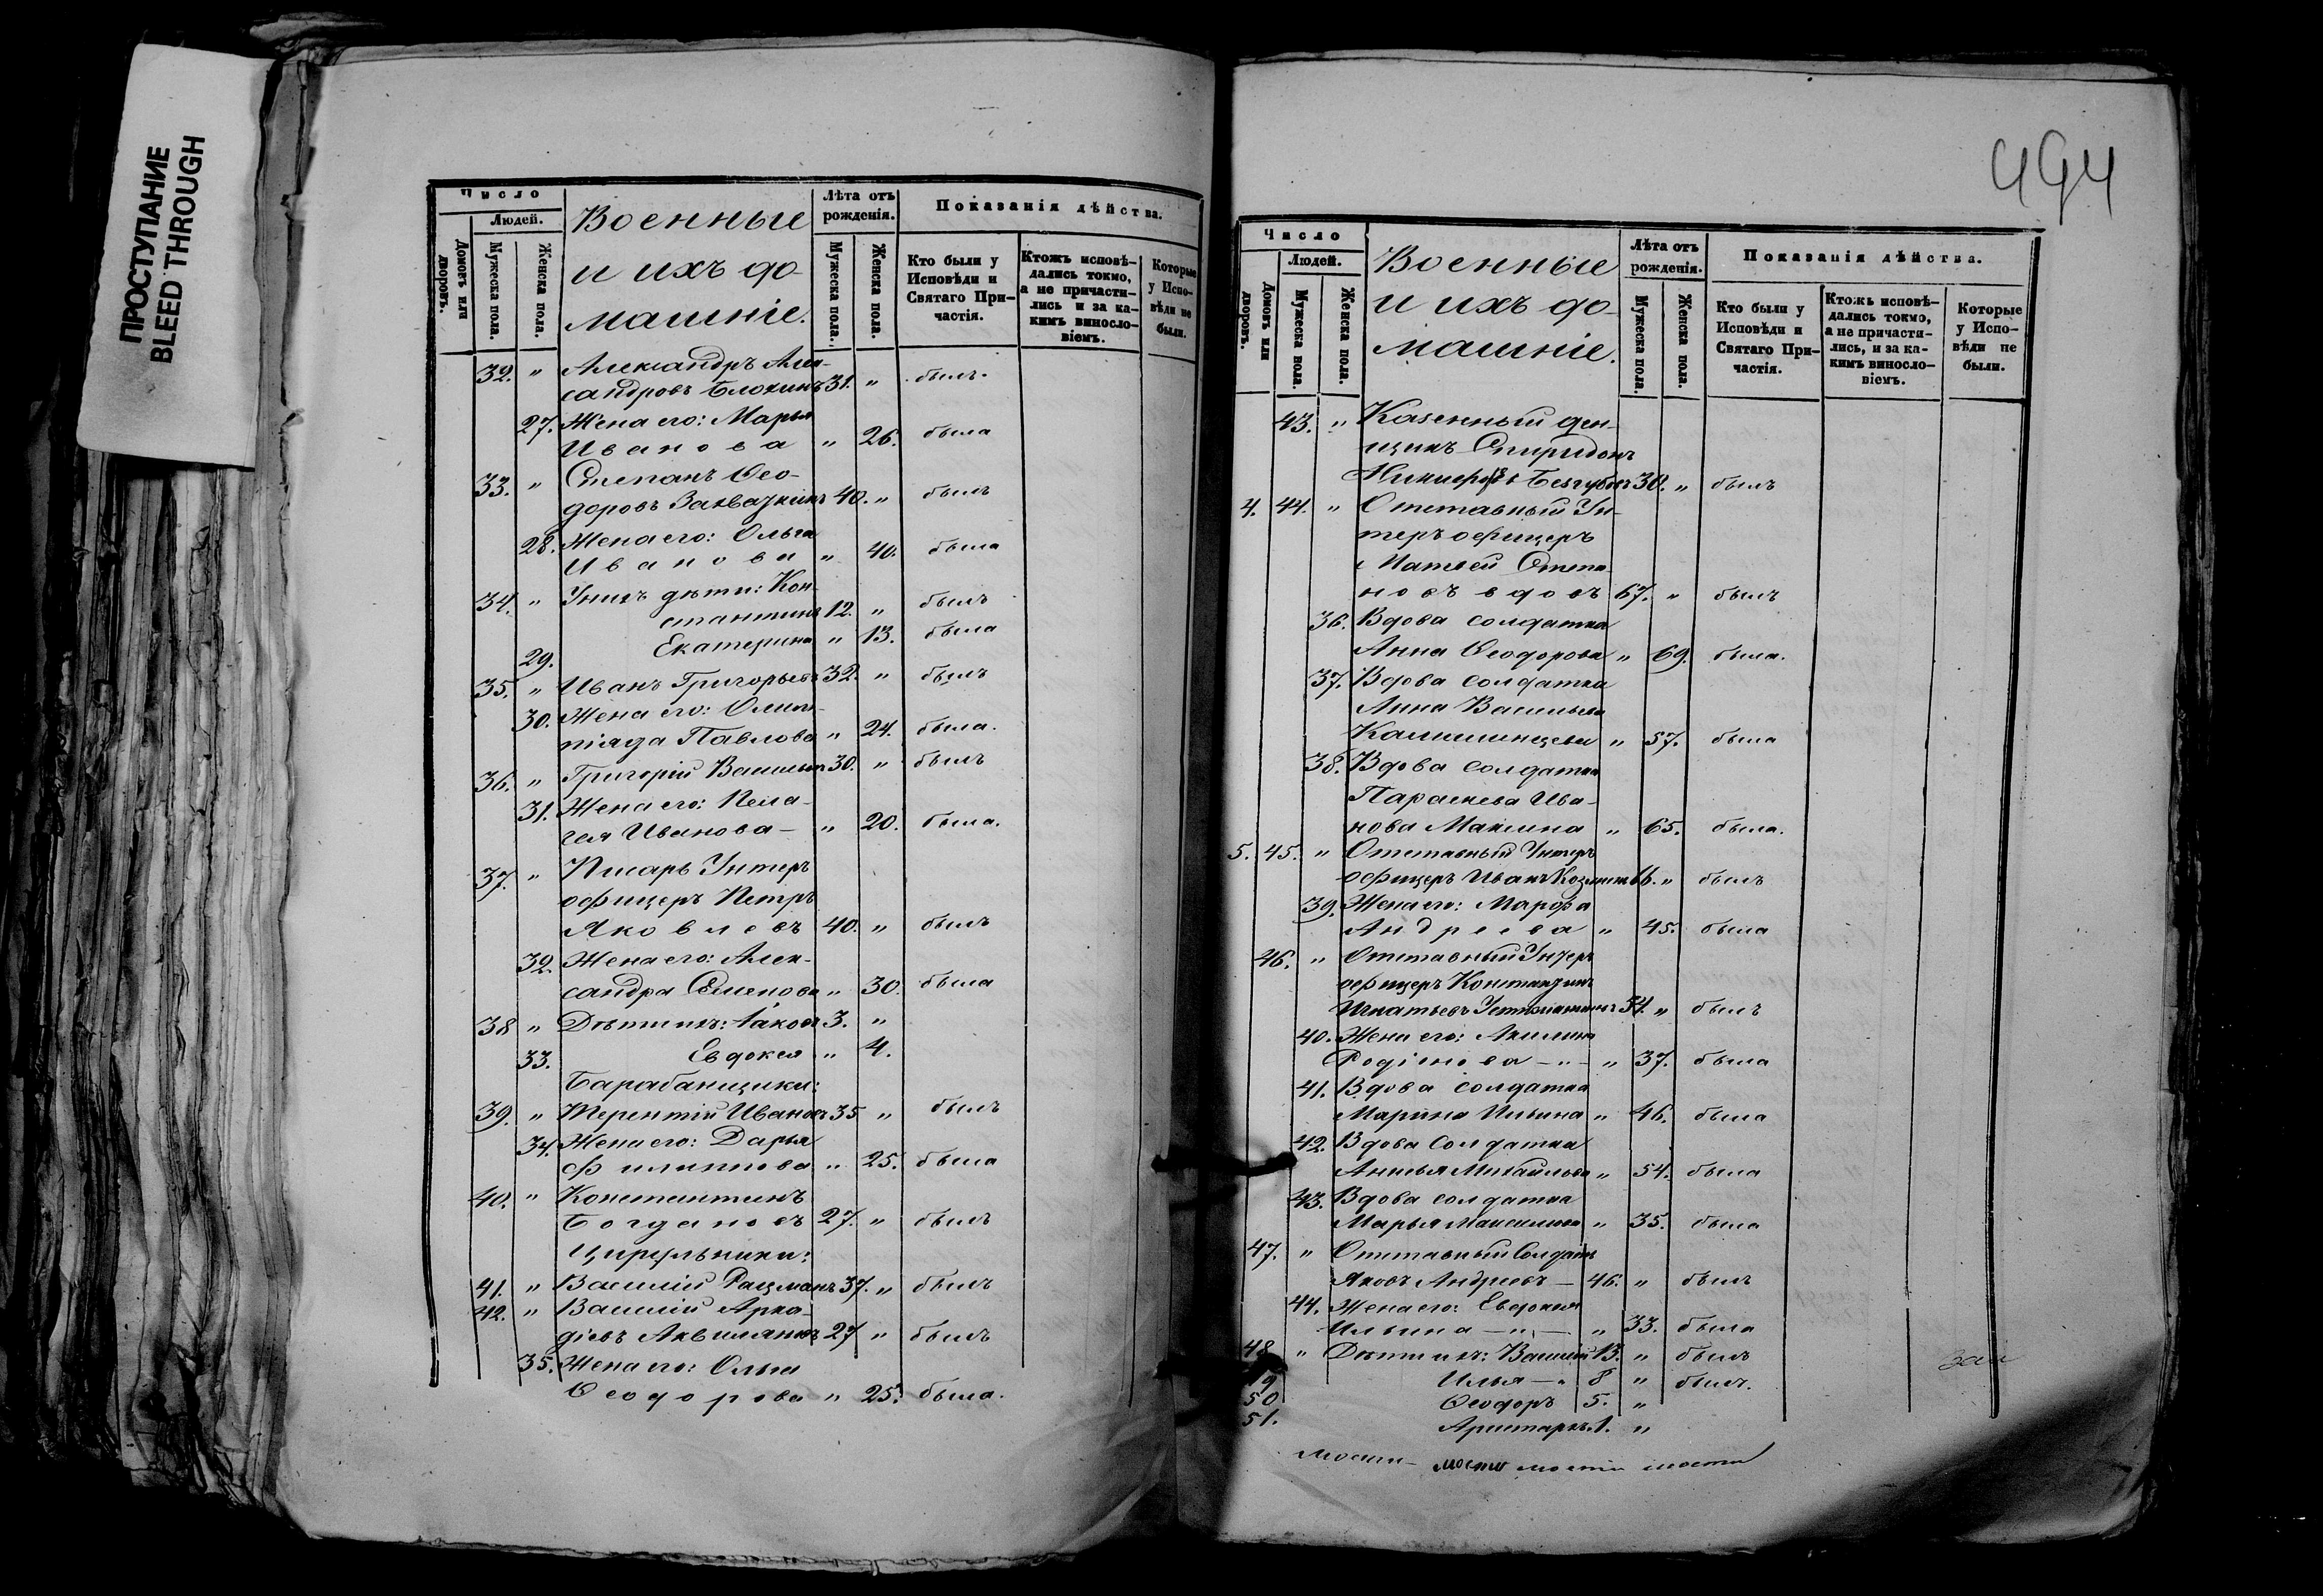 ПРОСТУПАНИЕ
BLEED THROUGH
Число
Людей.
Домовъ или дворовъ.
Мужеска пола.
Женска пола.
Военные
и ихъ до-
машніе.
Лѣта отъ рожденія.
Мужеска пола.
Женска пола.
Показанія дѣйства.
Кто были у Исповѣди и Святаго При-частія.
Ктожъ исповѣ-дались токмо, а не причасти-лись и за ка-кимъ винослo-віемъ.
Которые у Испо-вѣди не были.
32. " Александръ Алек-
сандровъ Блохинъ 31. " былъ.
27. Жена его: Марья
Иванова " 26. была
33. " Степанъ Ѳео-
доровъ 40. " былъ
28. Жена его: Ольга
Иванова " 40. была
34. " У нихъ дѣти: Кон-
стантинъ 12. " былъ
29. Екатерина " 13. была
35. " Иванъ Григорьевъ 32. " былъ
30. Жена его: Олим-
піяда Павлова " 24. была.
36. " Григорій Васильевъ 30. " былъ
31. Жена его: Пела-
гея Иванова — " 20. была.
37. " Писарь Унтеръ
офицеръ Петръ
Яковлевъ 40. " былъ
32. Жена его: Алек-
сандра Семенова " 30. была
38 " Дѣти ихъ: Іаковъ 3. "
33. Евдокея " 4.
Барабанщики:
39. " Терентій Ивановъ 35 " былъ
34. Жена его: Дарья
Филиппова " 25. была
40. " Константинъ
Богдановъ 27. " былъ
Цирульники:
41. " Василій Рацманъ 37. " былъ
42. " Василій Арка-
діевъ 27 " былъ
35. Жена его: Ольга
Ѳеодорова " 25. была.
494
Число
Людей.
Домовъ или дворовъ.
Мужеска пола.
Женска пола.
Военные
и ихъ до-
машніе.
Лѣта отъ рожденія.
Мужеска пола.
Женска пола.
Показанія дѣйства.
Кто были у Исповѣди и Святаго При-частія.
Ктожъ исповѣ-дались токмо, а не причасти-лись, и за ка-кимъ винослo-віемъ.
Которые у Испо-вѣди не были.
43. " Казенный ден-
щикъ Спиридонъ
Никифоровъ 30. " былъ
4. 44. " Отставный Ун-
теръ офицеръ
Матвей Степа-
новъ вдовъ 67. " былъ
36. Вдова солдатка
Анна Ѳеодорова " 69. была.
37. Вдова солдатка
Анна Васильева
" 57. была
38. Вдова солдатка
Параскева Ива-
нова " 65. была.
5. 45. " Отставный Унтеръ
офицеръ Иванъ Козминъ 66. " былъ
39. Жена его: Марѳа
Андреева " 45. была
46. " Отставный Унтеръ
офицеръ Константинъ
Игнатьевъ 54. " былъ
40. Жена его: Акилина
Родіонова — " — " 37. была
41. Вдова солдатка
Марина Ильина " 46. была
42. Вдова Солдатка
Анисья Михайлова " 54. была
43. Вдова солдатка
Марья Максимова " 35. была
47. " Отставный Солдатъ
Яковъ Андреевъ — 46. " былъ
44. Жена его: Евдокея
Ильина — " — " 33. была
48 " Дѣти ихъ: Василій 13. " былъ
9 Илья — " 8 " былъ.
50 Ѳеодоръ 5. "
51. Аристархъ 1. "
зам
мости- мости мости мости